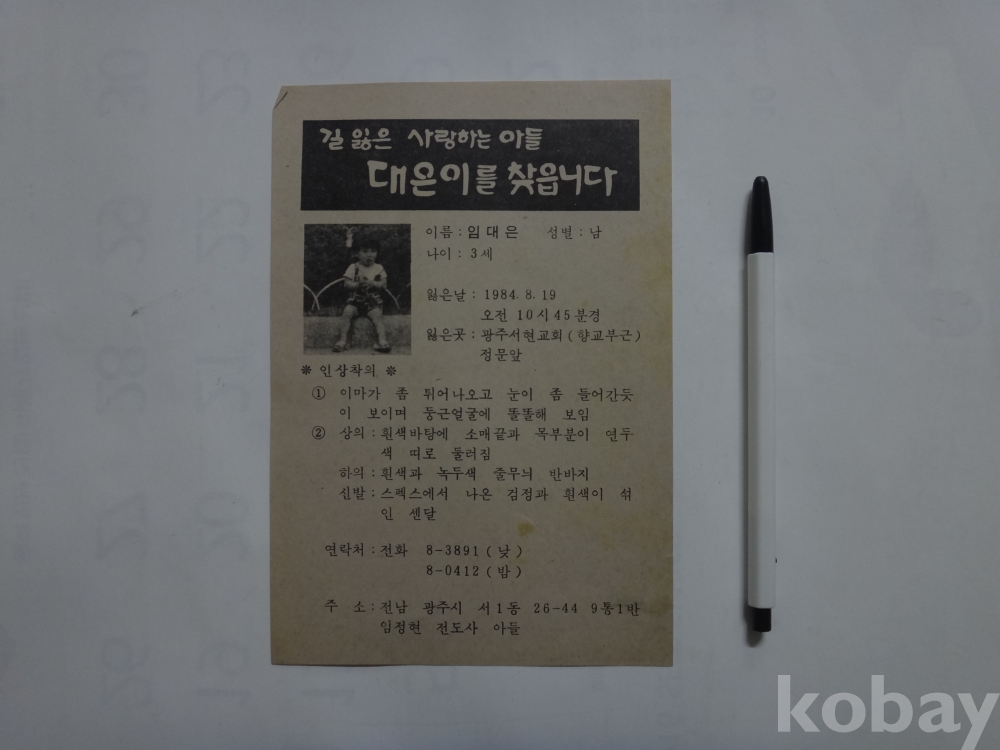 길 잃은 사랑하는 아들
대은이를 찾읍니다
이름 : 임대은 성별 : 남
나이 : 3세
잃은날 : 1984. 8. 19
오전 10시 45분경
잃은곳 : 광주서현교회 ( 향교부근 )
정문앞
※ 인상착의 ※
① 이마가 좀 튀어나오고 눈이 좀 들어간듯
이 보이며 둥근얼굴에 똘똘해 보임
② 상의 : 흰색바탕에 소매끝과 목부분이 연두
색 띠로 둘러짐
하의 : 흰색과 녹두색 줄무늬 반바지
신발 : 스펙스에서 나온 검정과 흰색이 섞
인 센달
연락처 : 전화 8-3891 ( 낮 )
8-0412 ( 밤 )
주 소 : 전남 광주시 서1동 26-44 9통1반
임정현 전도사 아들
kobay